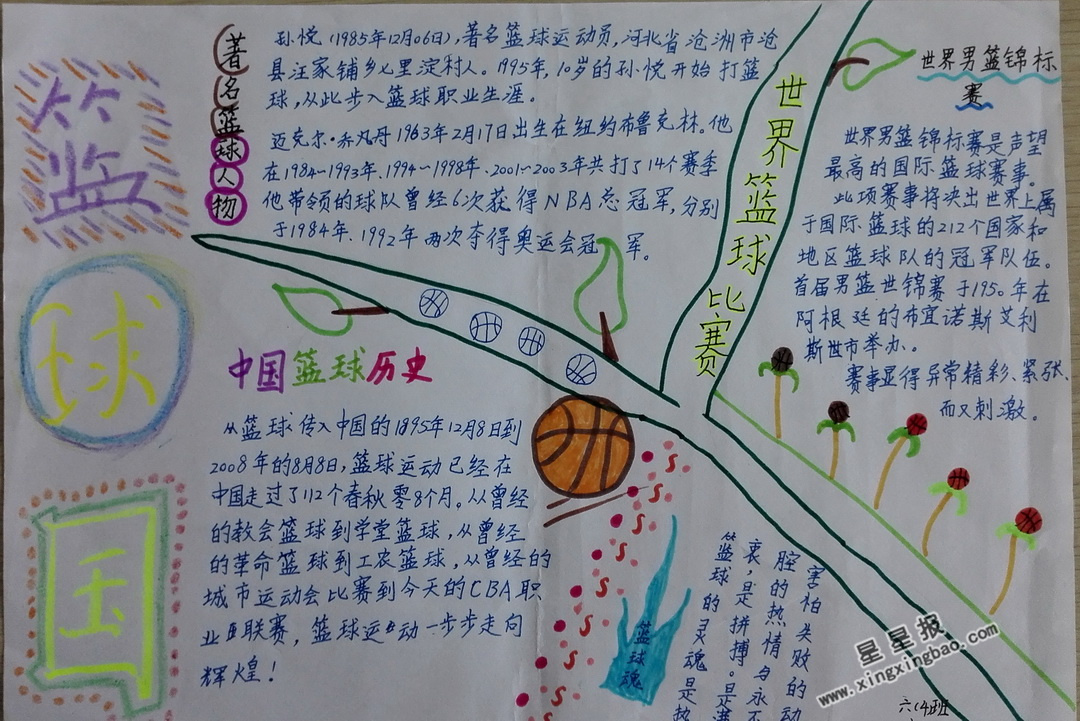 篮
球
国
著名篮球人物
孙悦(1985年12月06日),著名篮球运动员,河北省沧洲市沧
县汪家铺乡七里淀村人。1995年,10岁的孙悦开始打篮
球,从此步入篮球职业生涯。
迈克尔·乔丸丹1963年2月17日出生在纽约布鲁克林。他
在1984~1993年、1994~1998年、2001~2003年共打了14个赛季
他带领的球队曾经6次获得NBA总冠军,分别
于1984年、1992年两次夺得奥运会冠军。
世界篮球比赛
世界男篮锦标
赛
世界男篮锦标赛是声望
最高的国际篮球赛事。
此项赛事将决出世界上属
于国际篮球的212个国家和
地区篮球队的冠军队伍。
首届男篮世锦赛于1950年在
阿根廷的布宜诺斯艾利
斯世市举办。
赛事显得异常精彩、紧张、
而又刺激。
中国篮球历史
从篮球传入中国的1895年12月8日到
2008年的8月8日,篮球运动已经在
中国走过了112个春秋零8个月。从曾经
的教会篮球到学堂篮球,从曾经
的革命篮球到工农篮球,从曾经的
城市运动会比赛到今天的CBA职
业联赛,篮球运动一步步走向
辉煌!
篮球魂
篮球的灵魂是热
衷,是拼搏。是满
腔的热情与永不
害怕失败的动
六(4)班
星星报
www.xingxingbao.com